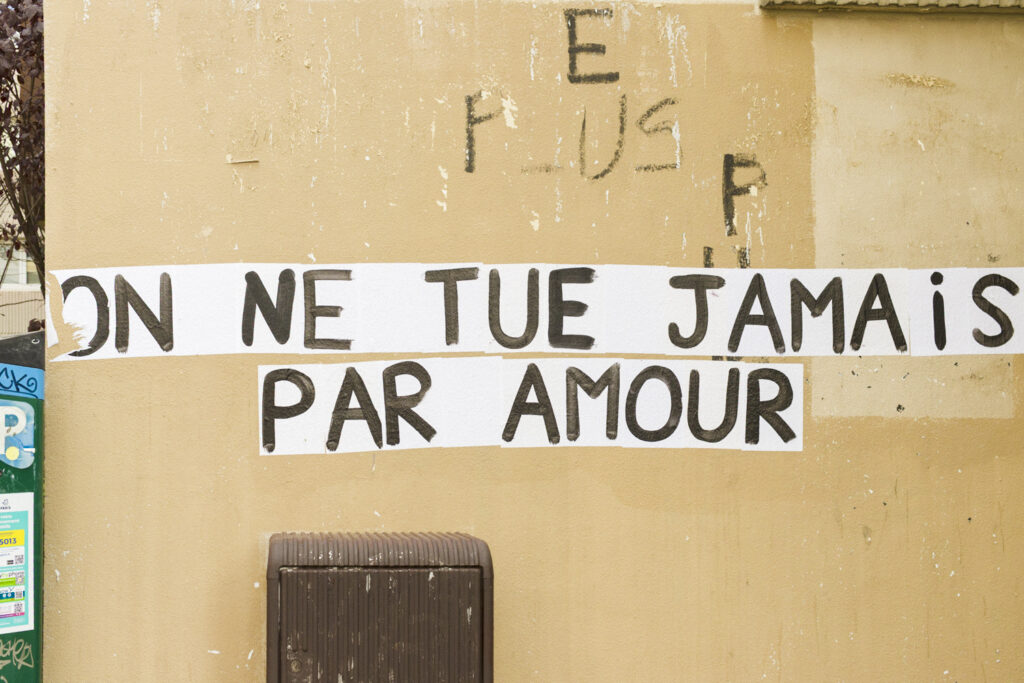 E
PLUS
P
ON NE TUE JAMAiS
PAR AMOUR
CK
P.
5013